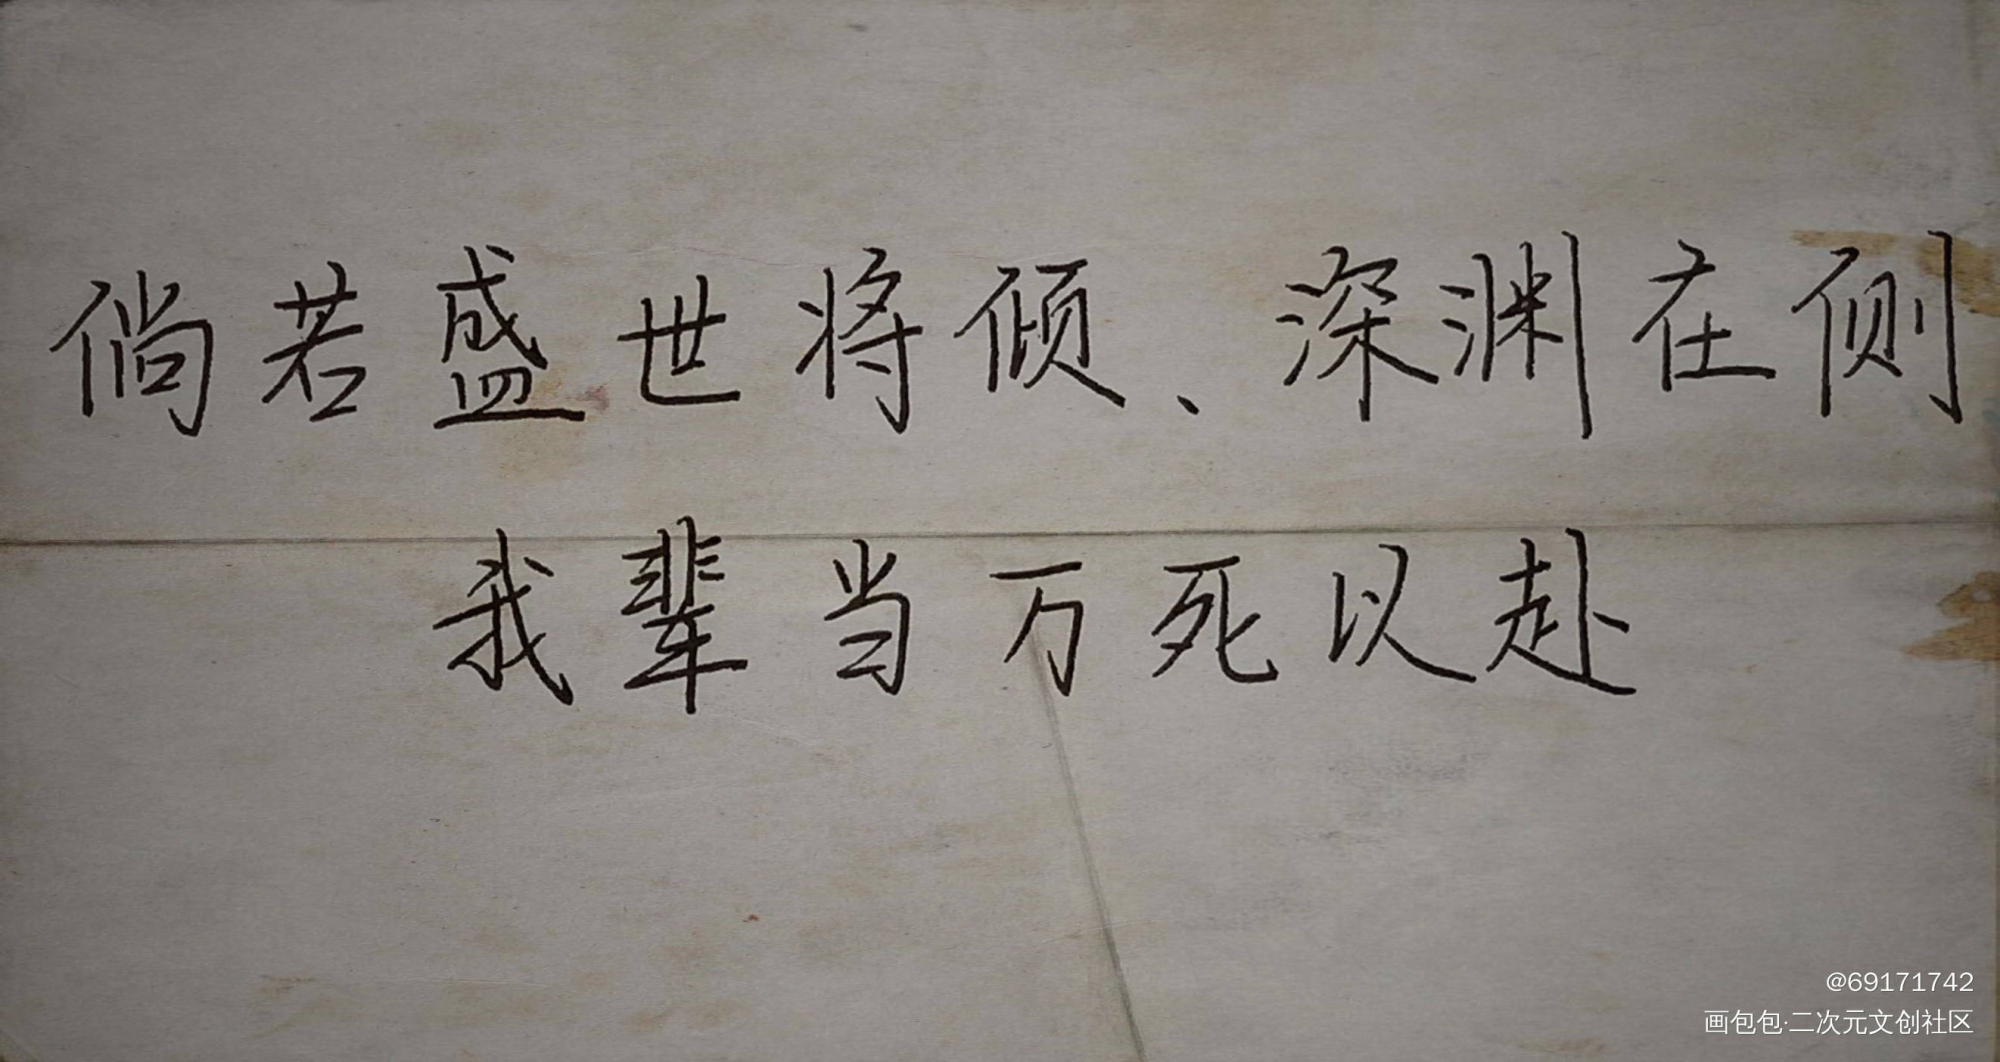 倘若盛世将倾、深渊在侧
我辈当万死以赴
@69171742
画包包·二次元文创社区